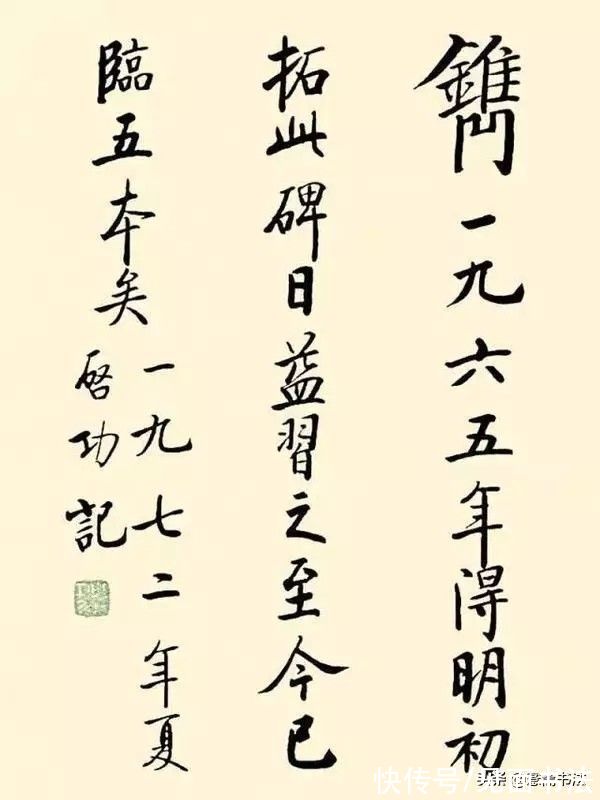 鐫一九六五年得明初
拓此碑日益習之至今已
臨五本矣
一九七二年夏
啓功記
头条
快传号/
书法